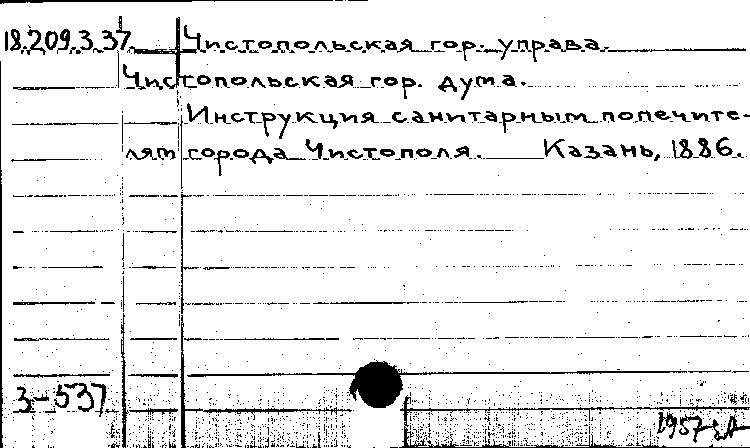 18.209.3.37. Чистопольская гор. управа.
Чистопольская гор. дума.
Инструкция санитарным попечите-
лям города Чистополя. Казань, 1886.
3-537
1957